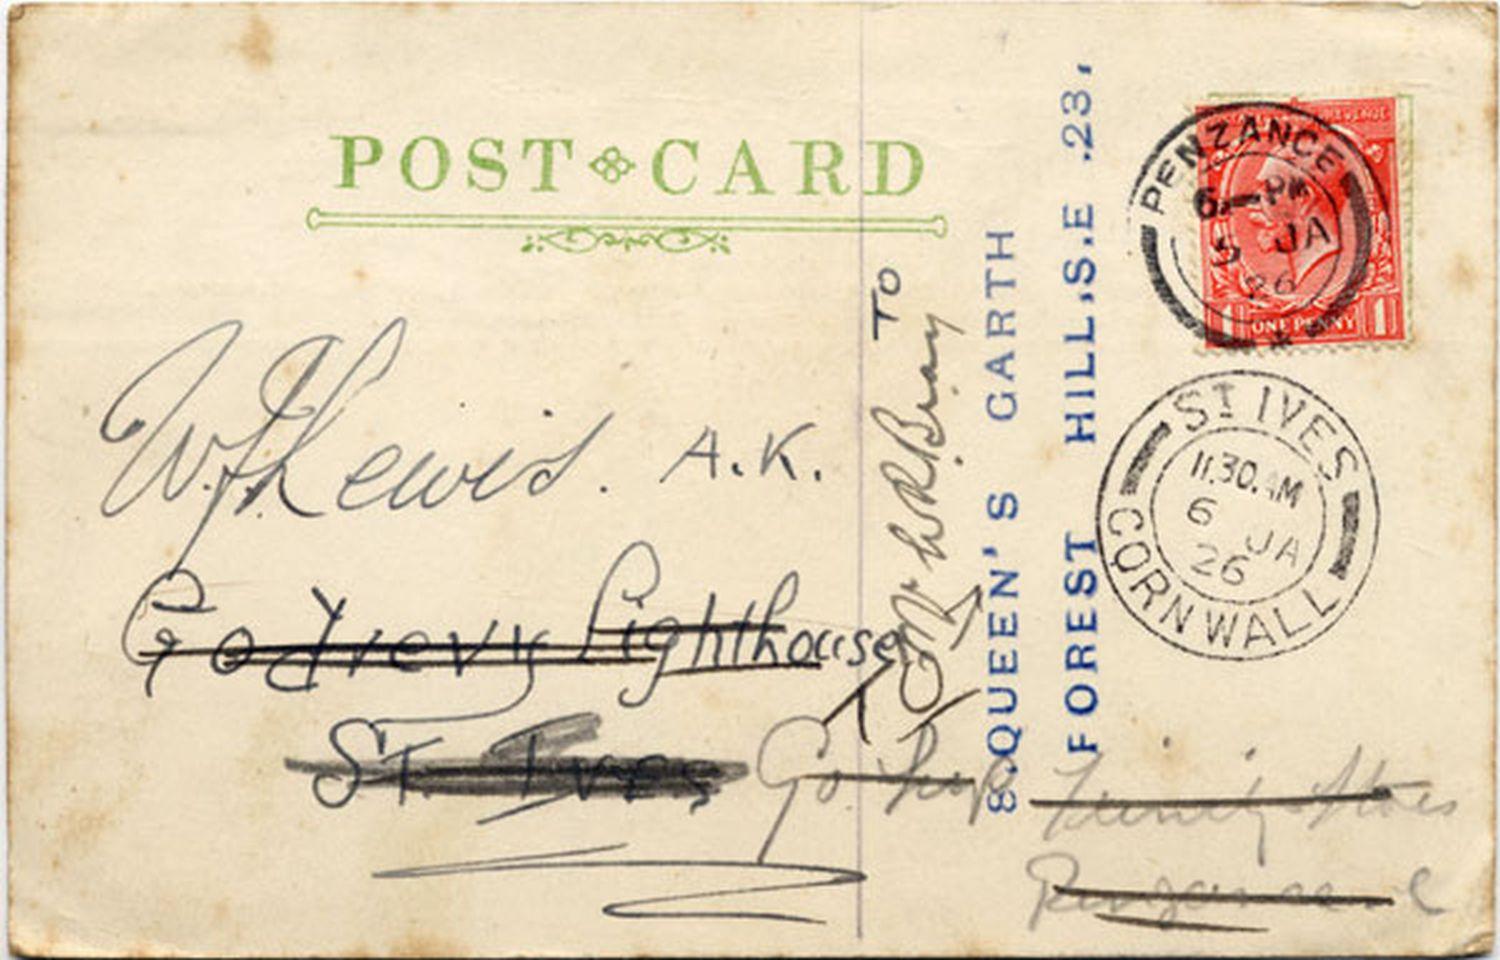 POST CARD
W. J. Lewis. A.K.
Godrevy Lighthouse
St. Ives
TO
Mr W R Bray
8.QUEEN'S GARTH
FOREST HILL,S.E .23,
Trinity Stores
Penzance
PENZANCE
6—PM
5 JA
26
REVENUE
1 ONE PENNY 1
ST IVES
11.30.AM
6 JA
26
CORNWALL